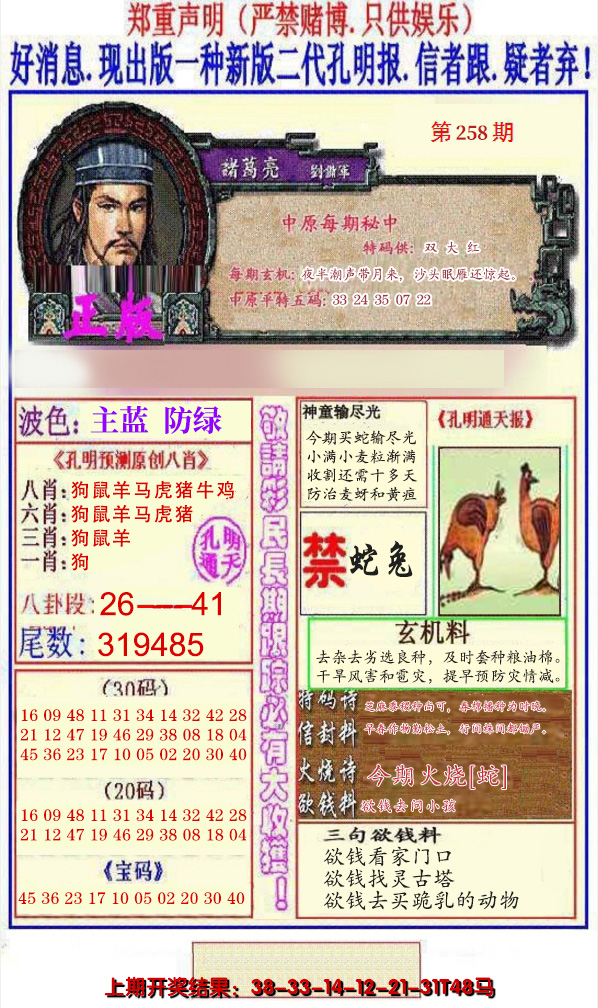 郑重声明（严禁赌博.只供娱乐）
好消息.现出版一种新版二代孔明报.信者跟.疑者弃！
第 258 期
諸葛亮 劉備軍
中原每期秘中
特码供：双 大 红
每期玄机：夜半潮声带月来，沙头眠雁还惊起。
中原平特五码：33 24 35 07 22
正版
波色：主蓝 防绿
《孔明预测原创八肖》
八肖：狗鼠羊马虎猪牛鸡
六肖：狗鼠羊马虎猪
三肖：狗鼠羊
一肖：狗
孔明
通天
八卦段：26——41
尾数：319485
（30码）
16 09 48 11 31 34 14 32 42 28
21 12 47 19 46 29 38 08 18 04
45 36 23 17 10 05 02 20 30 40
（20码）
16 09 48 11 31 34 14 32 42 28
21 12 47 19 46 29 38 08 18 04
《宝码》
45 36 23 17 10 05 02 20 30 40
敬請彩民長期跟踪必有大收獲！
神童输尽光
今期买蛇输尽光
小满小麦粒渐满
收割还需十多天
防治麦蚜和黄疸
《孔明通天报》
禁 蛇兔
玄机料
去杂去劣选良种，及时套种粮油棉。
干旱风害和雹灾，提早预防灾情减。
特码诗 芝麻黍稷种尚可，弃棉播种为时晚。
信封料 早春作物勤松土，行间株间都锄严。
火烧诗 今期火烧[蛇]
欲钱料 欲钱去问小孩
三句欲钱料
欲钱看家门口
欲钱找灵古塔
欲钱去买跪乳的动物
上期开奖结果：38-33-14-12-21-31T48马